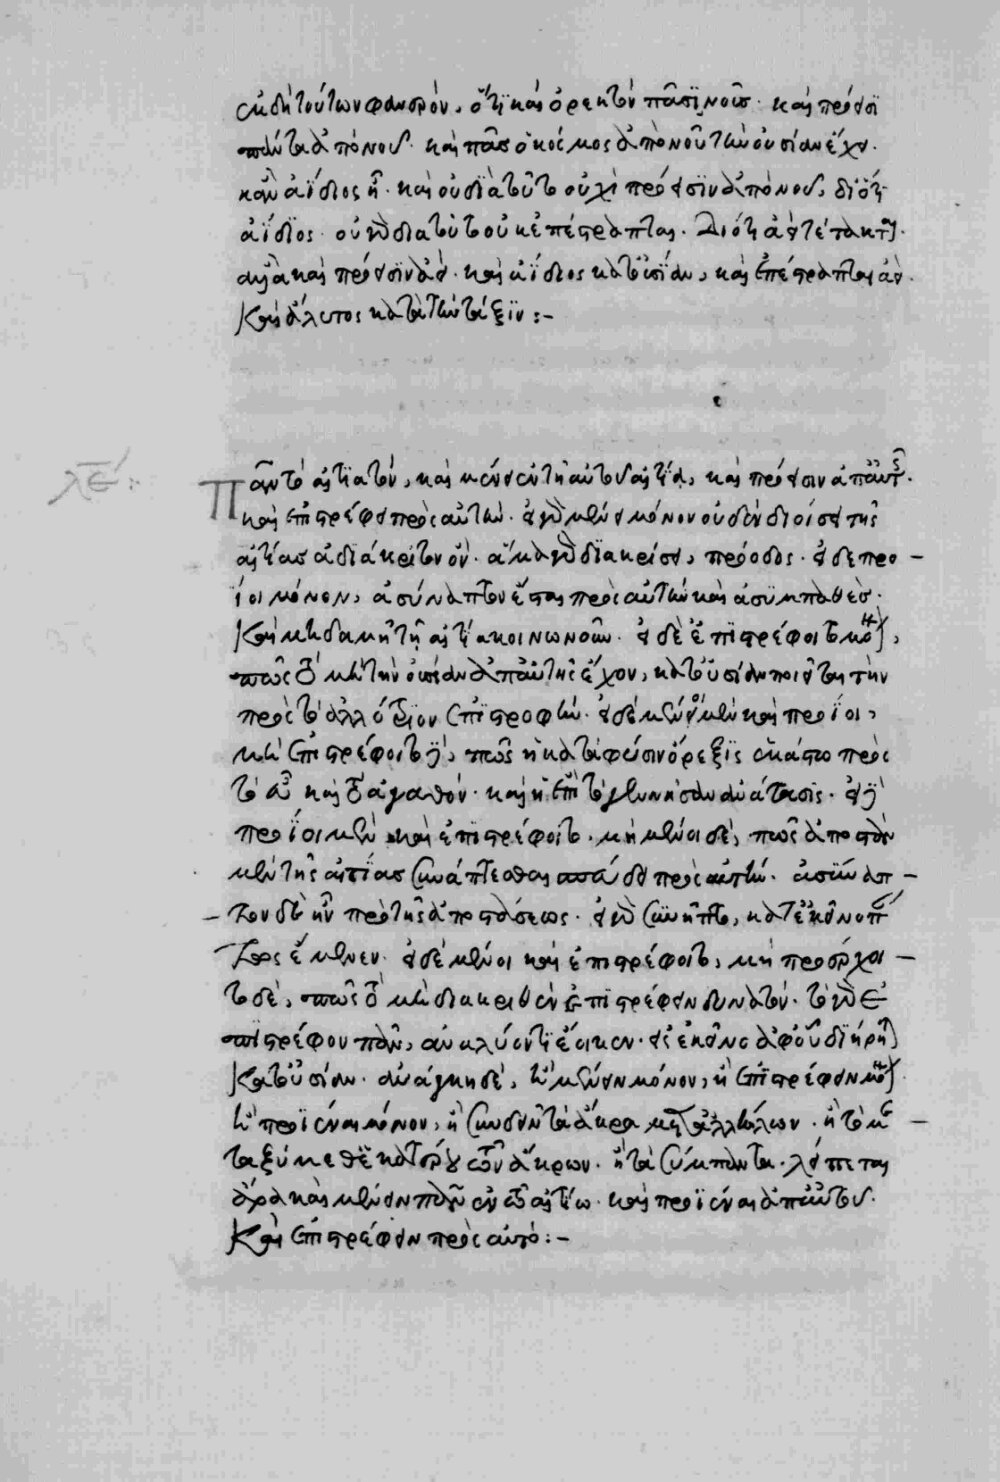 ἐκ δὴ τούτων φανερόν, ὅτι καὶ ὀρεκτὸν πᾶσι νοῦς· καὶ πρόεισι
πάντα ἀπὸ νοῦ· καὶ πᾶς ὁ κόσμος ἀπὸ νοῦ τὴν οὐσίαν ἔχει·
κἂν ἀΐδιος ᾖ· καὶ οὐ διὰ τοῦτο οὐχὶ πρόεισιν ἀπὸ νοῦ, διότι
ἀΐδιος· οὐ γὰρ διὰ τοῦτο οὐκ ἐπέστραπται· διότι ἀεὶ τέτακται·
ἀλλὰ καὶ πρόεισιν ἀεί· καὶ ἀΐδιος κατ' οὐσίαν, καὶ ἐπέστραπται ἀεί·
καὶ ἄλυτος κατὰ τὴν τάξιν :-
λε΄:
Πᾶν τὸ αἰτιατόν, καὶ μένει ἐν τῇ αὐτοῦ αἰτίᾳ, καὶ πρόεισιν ἀπ' αὐτῆς·
καὶ ἐπιστρέφει πρὸς αὐτήν· εἰ γὰρ μένει μόνον οὐδὲν διοίσει τῆς
αἰτίας ἀδιάκριτον ὄν· ἅμα γὰρ διακρίσει, πρόοδος· εἰ δὲ προ –
ΐοι μόνον, ἀσύναπτον ἔσται πρὸς αὐτὴν καὶ ἀσυμπαθές·
καὶ μηδαμῇ τῇ αἰτίᾳ κοινωνοῦν· εἰ δὲ ἐπιστρέφοιτο μόνον,
πῶς τὸ μὴ τὴν οὐσίαν ἀπ' αὐτῆς ἔχον, κατ' οὐσίαν ποιεῖται τὴν
πρὸς τὸ ἀλλότριον ἐπιστροφήν· εἰ δὲ μένοι μὲν καὶ προΐοι,
μὴ ἐπιστρέφοιτο δέ, πῶς ἡ κατὰ φύσιν ὄρεξις ἑκάστῳ πρὸς
τὸ εὖ καὶ τὸ ἀγαθόν· καὶ ἡ ἐπὶ τὸ γεννῆσαν ἀνάτασις· εἰ δὲ
προΐοι μὲν καὶ ἐπιστρέφοιτο· μὴ μένοι δέ, πῶς ἀποστὰν
μὲν τῆς αἰτίας συνάπτεσθαι σπεύδει πρὸς αὐτήν· ἀσύναπ –
– τον δὲ ἦν πρὸ τῆς ἀποστάσεως· εἰ γὰρ συνῆπτο, κατ' ἐκεῖνο πάν
τως ἔμενεν· εἰ δὲ μένοι καὶ ἐπιστρέφοιτο, μὴ προέρχοι –
το δέ, πῶς τὸ μὴ διακριθὲν ἐπιστρέφειν δυνατόν· τὸ γὰρ ἐ
πιστρέφον πᾶν, ἀναλύοντι ἔοικεν· εἰς ἐκεῖνο ἀφ' οὗ διῄρηται
κατ' οὐσίαν· ἀνάγκη δέ, ἢ μένειν μόνον, ἢ ἐπιστρέφειν μόνον·
ἢ προϊέναι μόνον, ἢ συνδεῖν τὰ ἄκρα μετ' ἀλλήλων· ἢ τὸ με –
ταξὺ μεθ' ἑκατέρου τῶν ἄκρων· ἢ τὰ σύμπαντα· λείπεται
ἄρα καὶ μένειν πᾶν ἐν τῷ αἰτίῳ· καὶ προϊέναι ἀπ' αὐτοῦ·
καὶ ἐπιστρέφειν πρὸς αὐτό :-